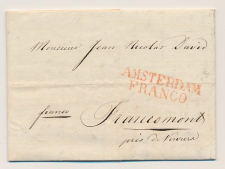 Monsieur Jean Nicolas David
AMSTERDAM
FRANCO
franco
Francomont
près de Verviers